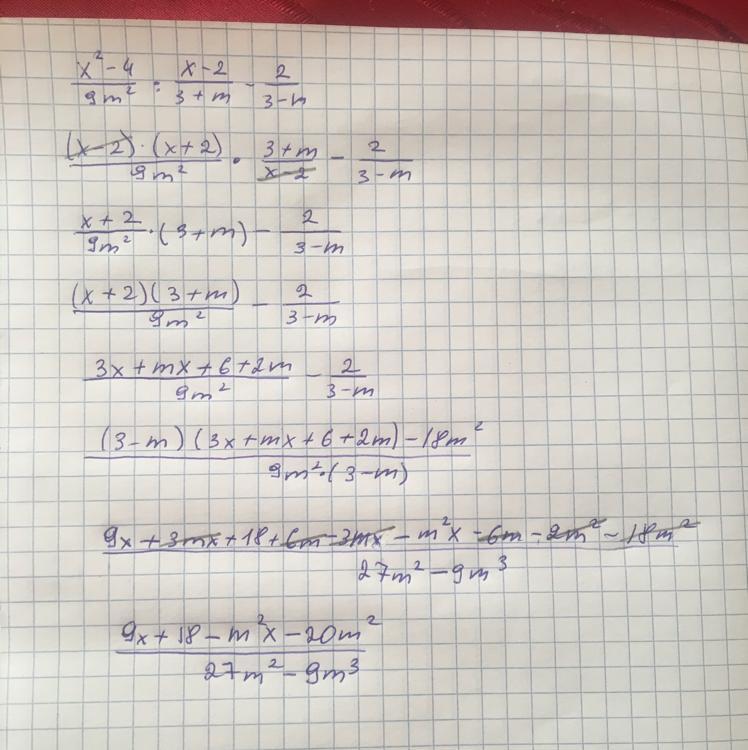 x² - 4 / 9m² : x - 2 / 3 + m - 2 / 3 - m
(x - 2) · (x + 2) / 9m² · 3 + m / x - 2 - 2 / 3 - m
x + 2 / 9m² · (3 + m) - 2 / 3 - m
(x + 2)(3 + m) / 9m² - 2 / 3 - m
3x + mx + 6 + 2m / 9m² - 2 / 3 - m
(3 - m)(3x + mx + 6 + 2m) - 18m² / 9m² · (3 - m)
9x + 3mx + 18 + 6m - 3mx - m²x - 6m - 2m² - 18m² / 27m² - 9m³
9x + 18 - m²x - 20m² / 27m² - 9m³